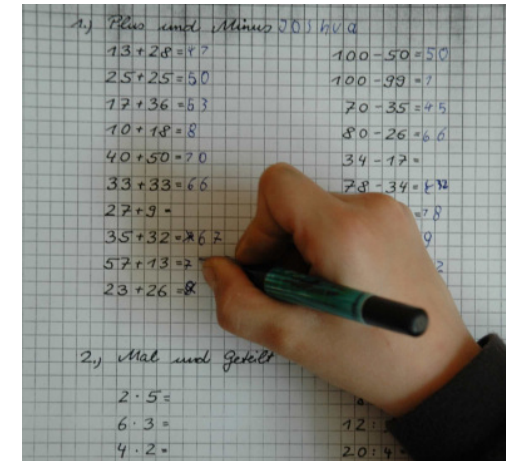 1.) Plus und Minus JOShua
13 + 28 = 47
25 + 25 = 50
17 + 36 = 53
10 + 18 = 8
40 + 50 = 70
33 + 33 = 66
27 + 9 =
35 + 32 = 67
57 + 13 = 7
23 + 26 =
100 - 50 = 50
100 - 99 = 1
70 - 35 = 45
80 - 26 = 66
34 - 17 =
78 - 34 = 32
= 78
9
2
2.) Mal und Geteilt
2 · 5 =
6 · 3 =
4 · 2 =
12 :
20 : 4 =